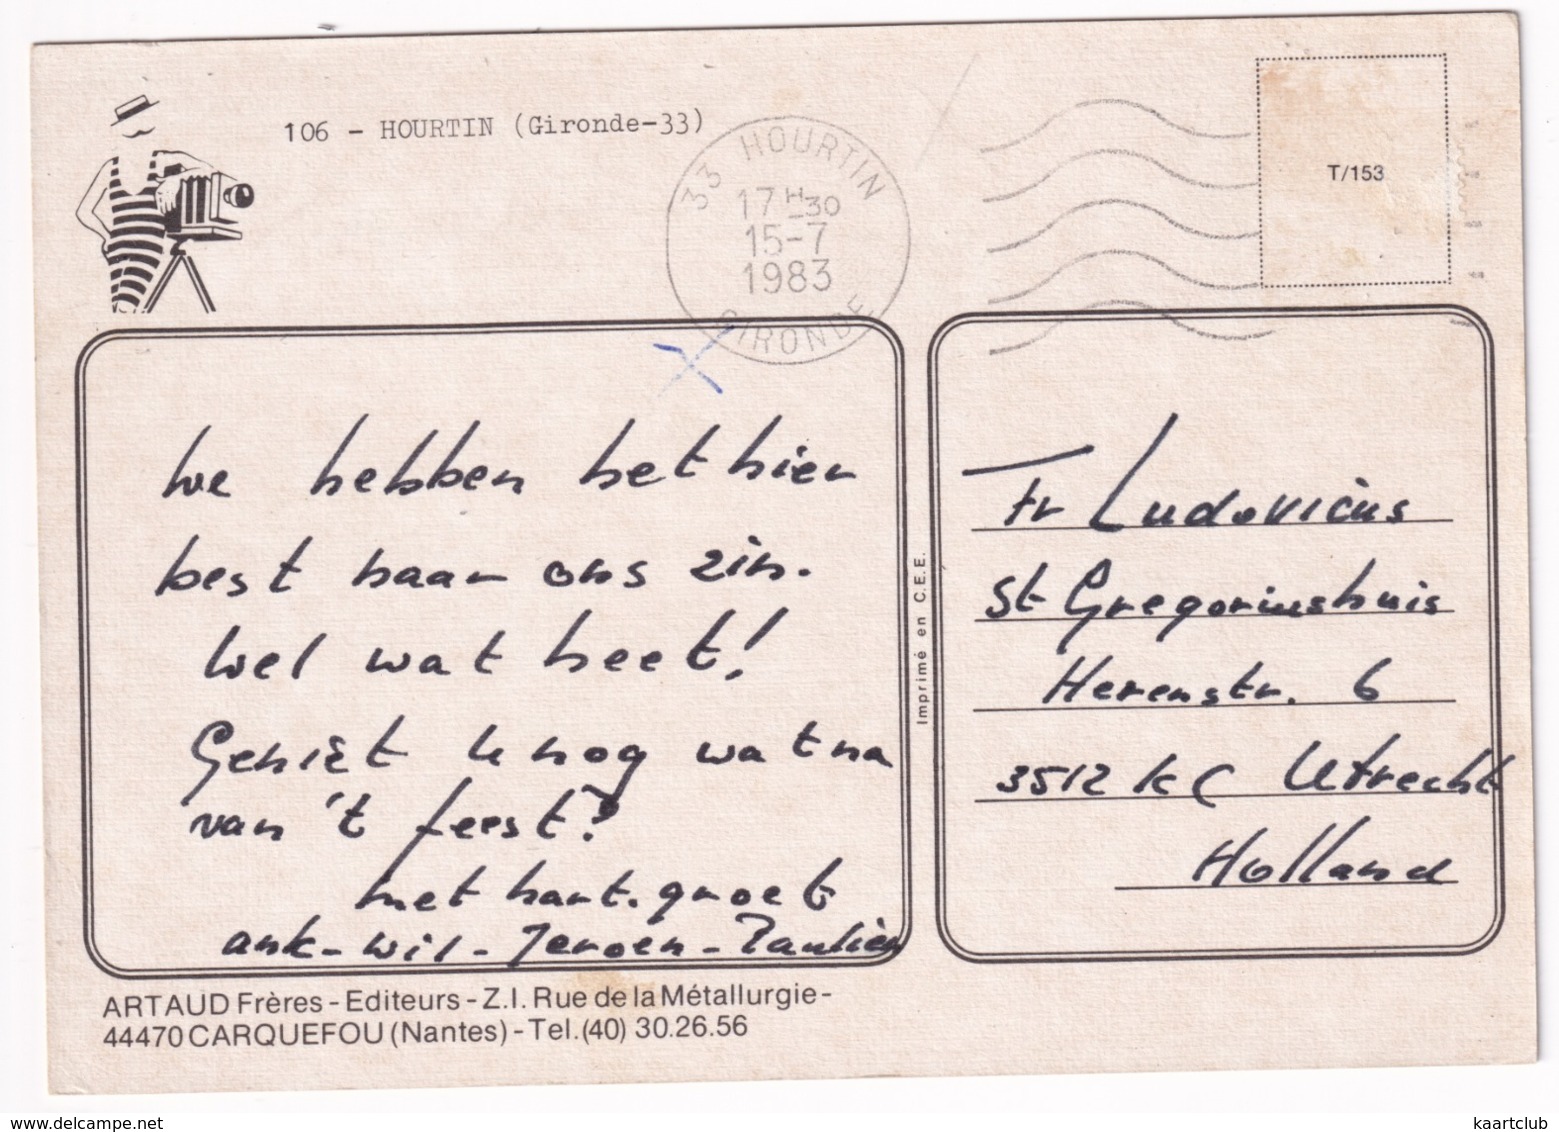 106 - HOURTIN (Gironde-33)
33 HOURTIN
17 H 30
15-7
1983
GIRONDE
T/153
we hebben het hier
best naar ons zin.
Wel wat heet!
Geniet u nog wat na
van 't feest?
Met hart. groet
ank - Wil - Jeroen - Paulien
Imprimé en C.E.E.
Fr Ludovicus
St Gregoriushuis
Herenstr. 6
3512 KC Utrecht
Holland
ARTAUD Frères - Editeurs - Z.I. Rue de la Métallurgie -
44470 CARQUEFOU (Nantes) - Tel. (40) 30.26.56
kaartclub